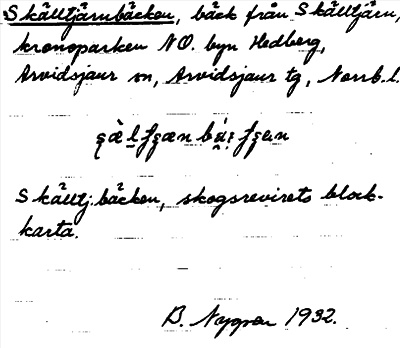 Skälltjärnbäcken, bäck från Skälltjärn,
kronoparken NO. byn Hedberg,
Arvidsjaur sn, Arvidsjaur tg, Norrb. l.
Skälltj.bäcken, skogsrevirets block-
karta.
B. Nygren 1932.